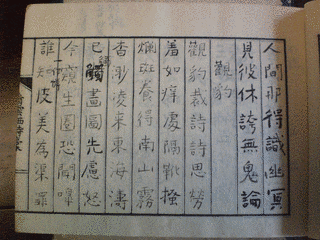 人間那得識幽冥
見彼休誇無鬼論
觀豹
觀豹裁詩詩思勞
着如痒處隔靴搔
斕斑養得南山霧
杳渺凌來東海濤
已觸畫圖先慮怒
今窺生圈恐聞嘷
誰知皮美為渠罪